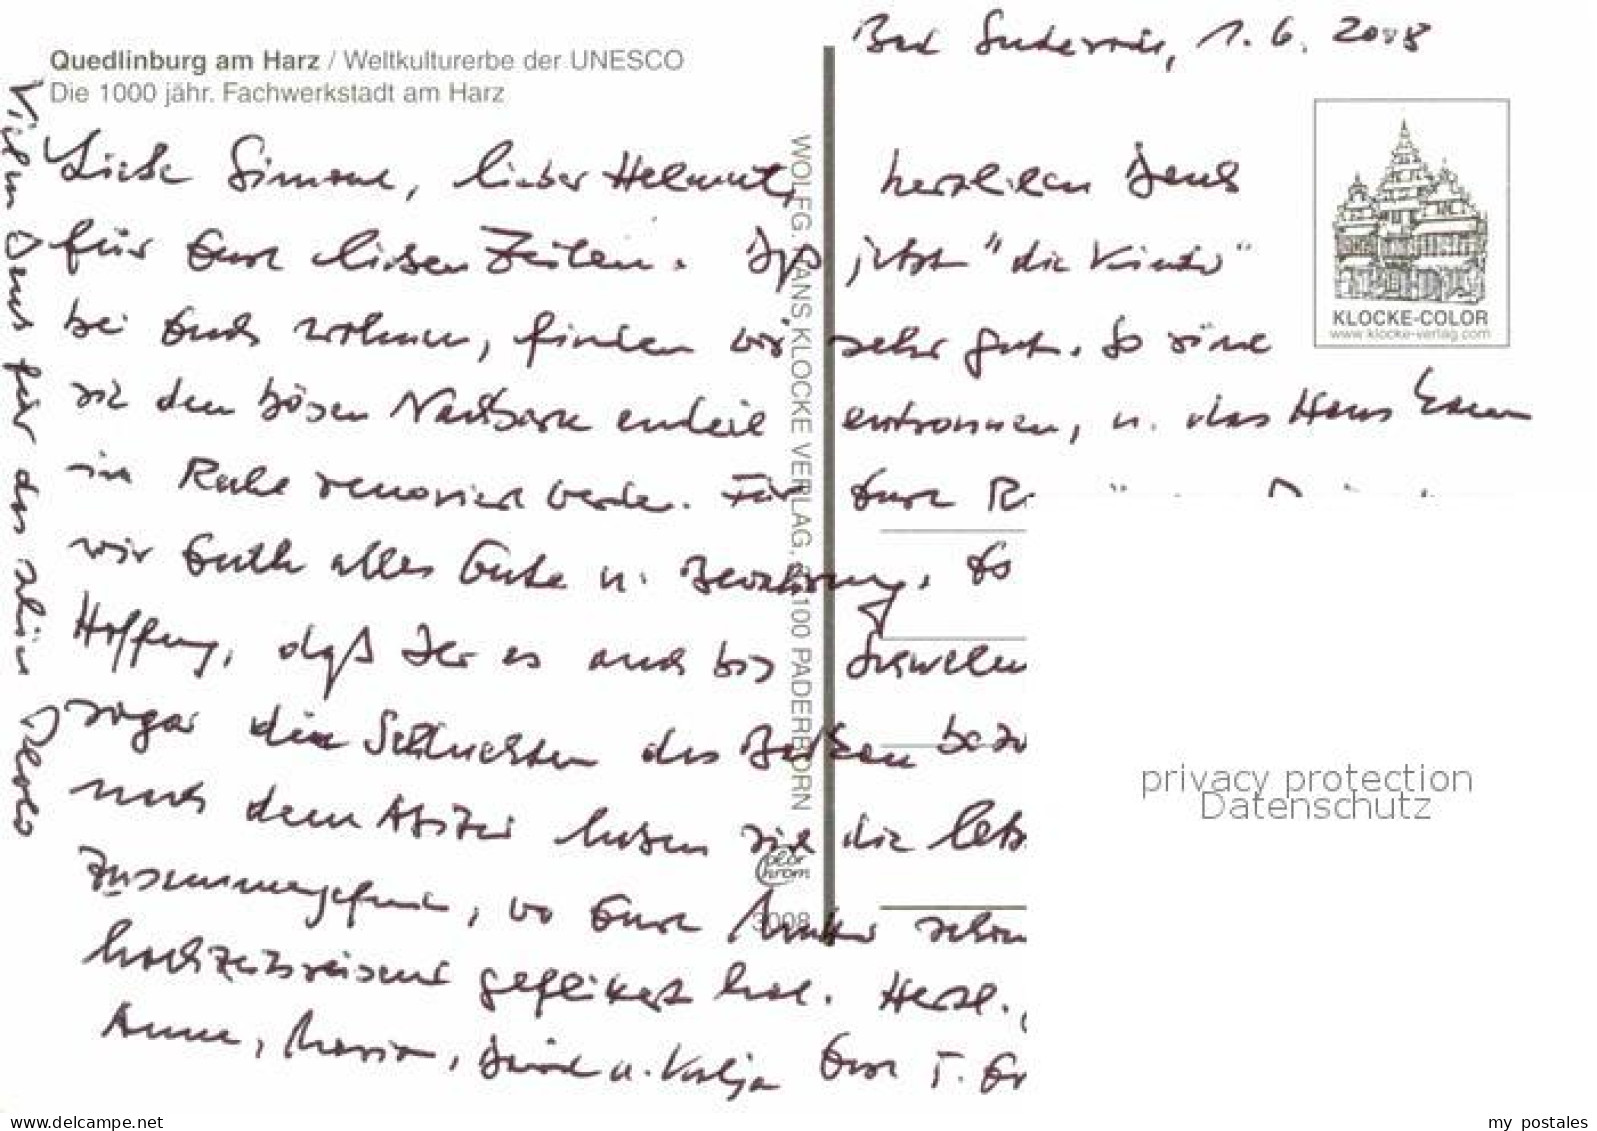 Bad Suderode, 1. 6. 2008
Quedlinburg am Harz / Weltkulturerbe der UNESCO
Die 1000 jähr. Fachwerkstadt am Harz
Liebe Simone, lieber Helmut, herzlichen Dank
für Eure lieben Zeilen. Daß jetzt "die Kinder"
bei Euch wohnen, finden wir sehr gut. So sind
sie den bösen Nachbarn endlich entronnen, u. das Haus kann
in Ruhe renoviert werden. Für Eure
wir Euch alles Gute u. Bewahrung. Es
Hoffnung, daß Ihr es auch bis
sogar die Schluchten des Balkan
nach dem Abitur haben sie die
zusammengeführt, wo Eure Mutter schon
hochzeitsreisend geflittert hat. Herzl.
Anne, Maria, u. Katja Eure T.
Vielen Dank für das schöne
WOLFG. HANS KLOCKE VERLAG, 100 PADERBORN
3008
KLOCKE-COLOR
www.klocke-verlag.com
privacy protection
Datenschutz
www.delcampe.net
my_postales